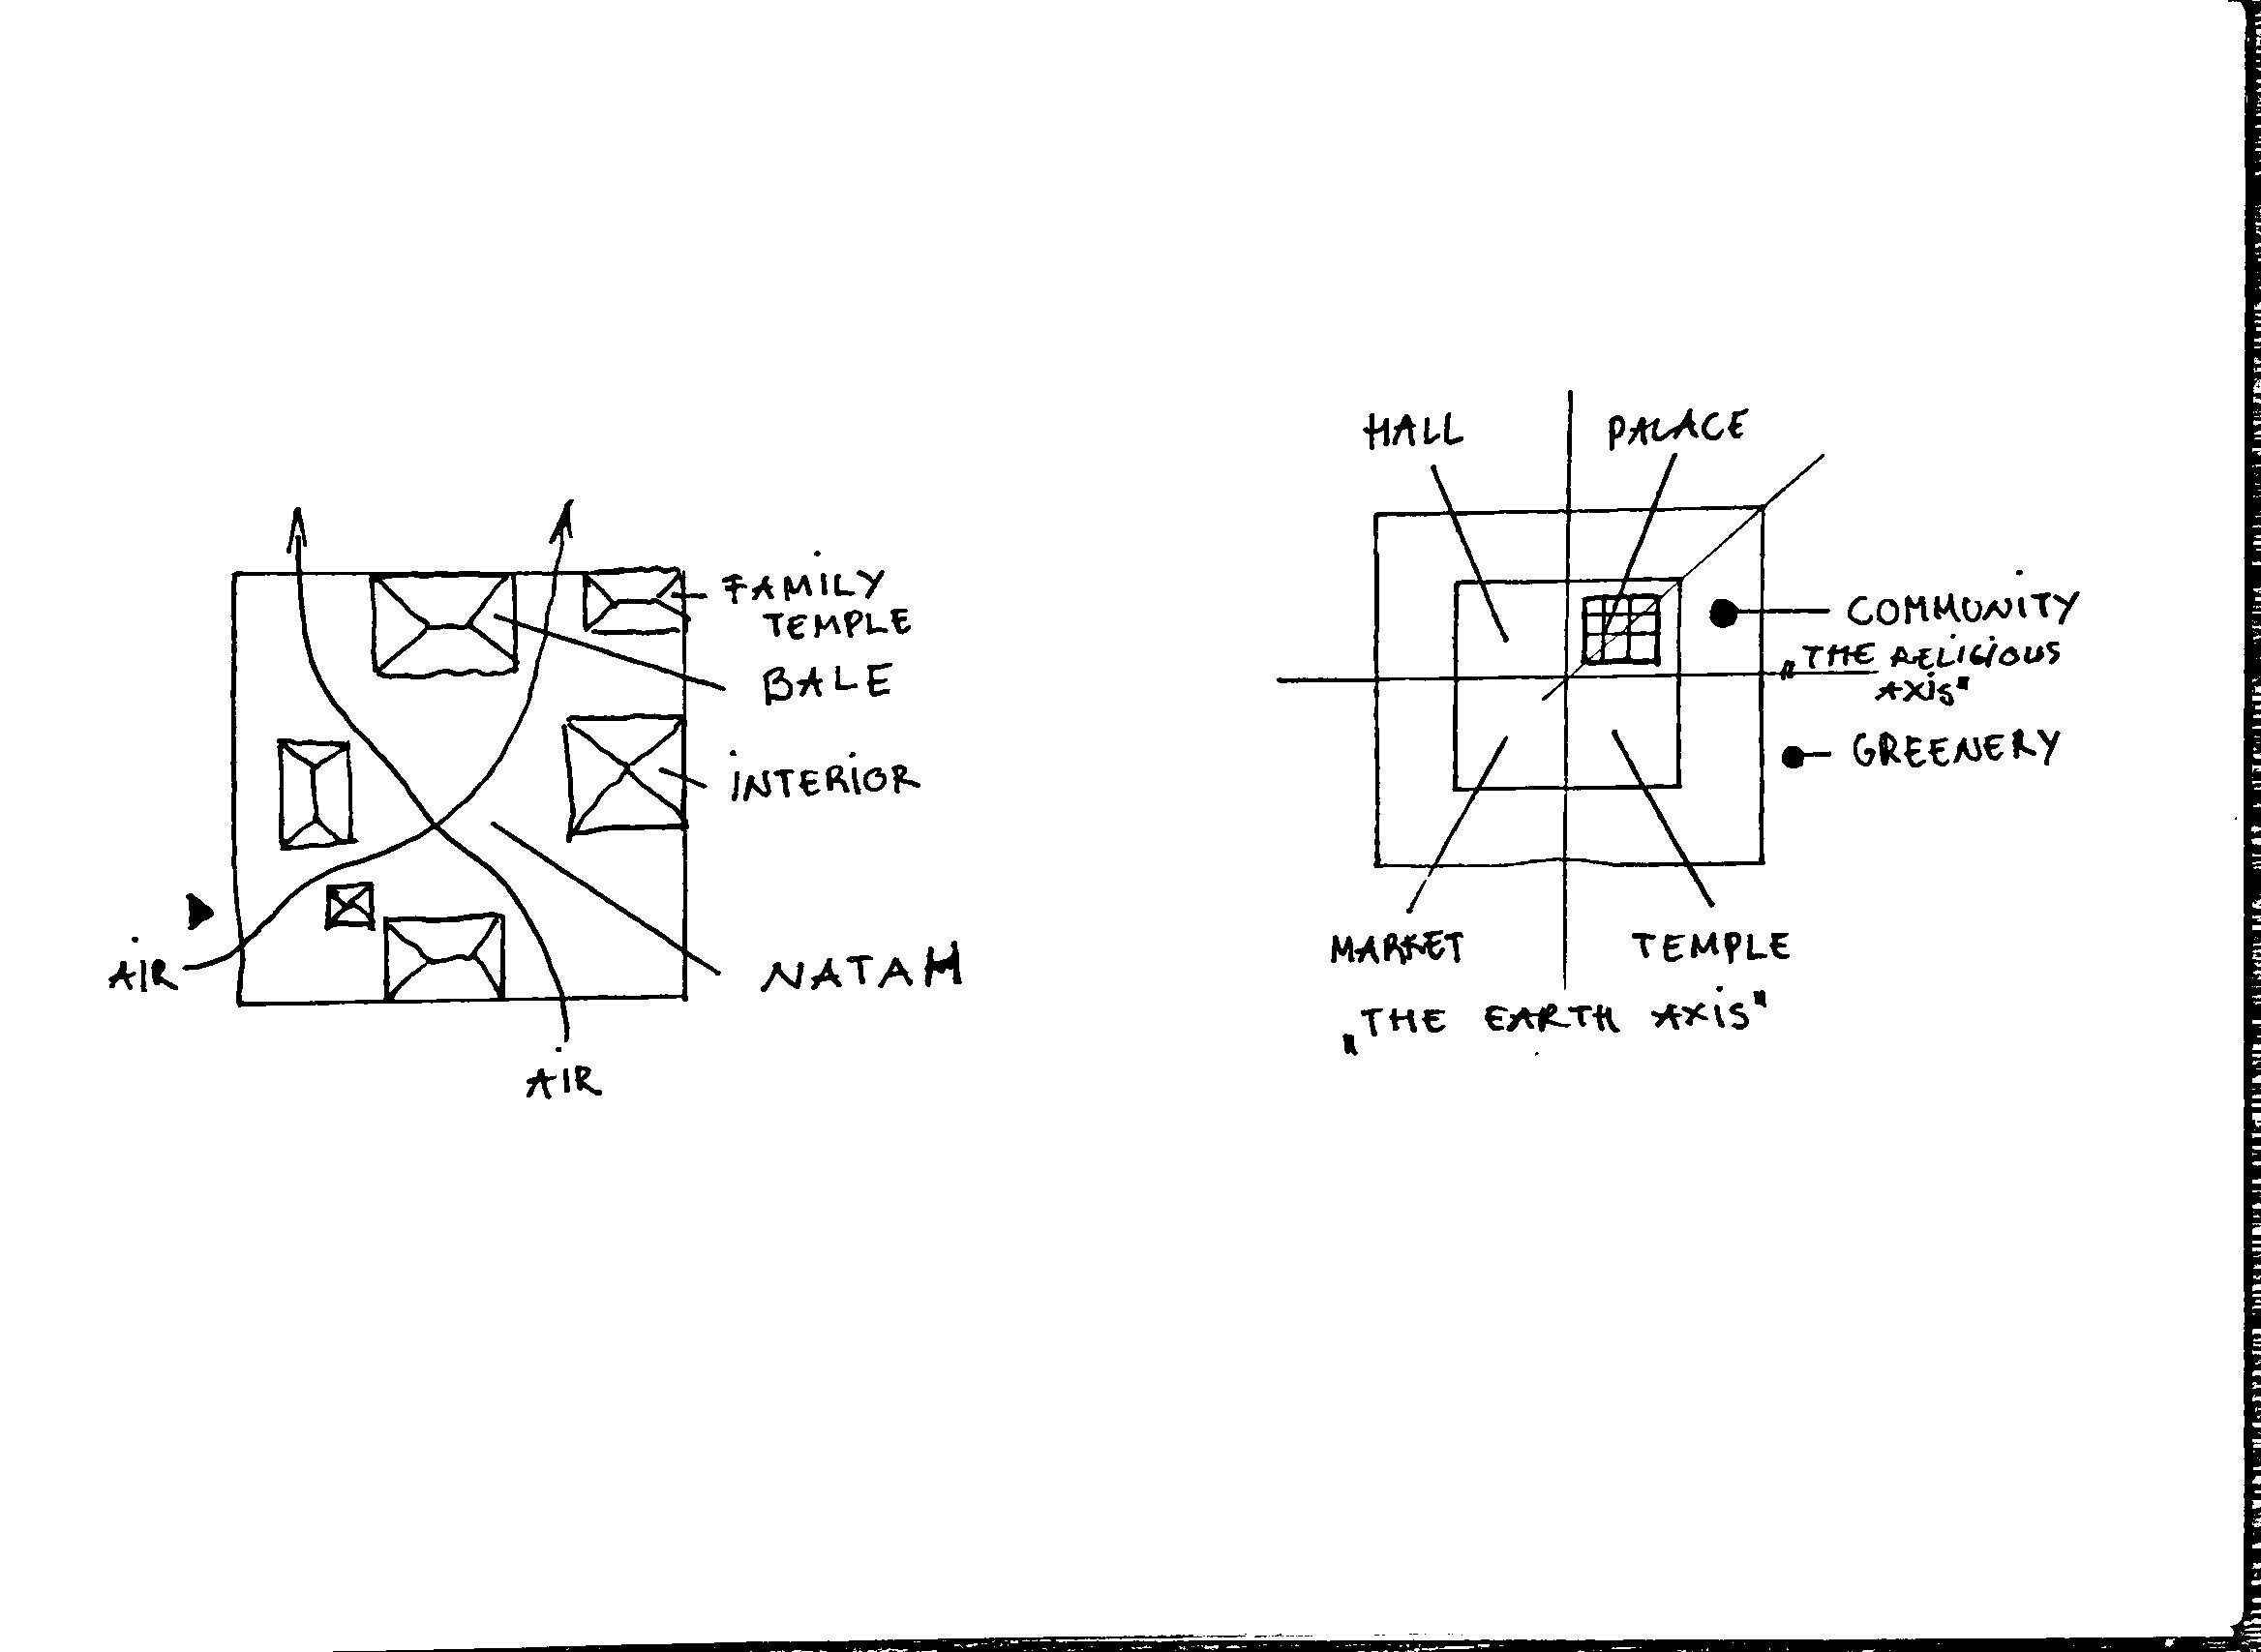 FAMILY
TEMPLE
BALE
INTERIOR
NATAH
AIR
AIR
HALL
PALACE
COMMUNITY
„THE RELIGIOUS
AXIS"
GREENERY
MARKET
TEMPLE
„THE EARTH AXIS"